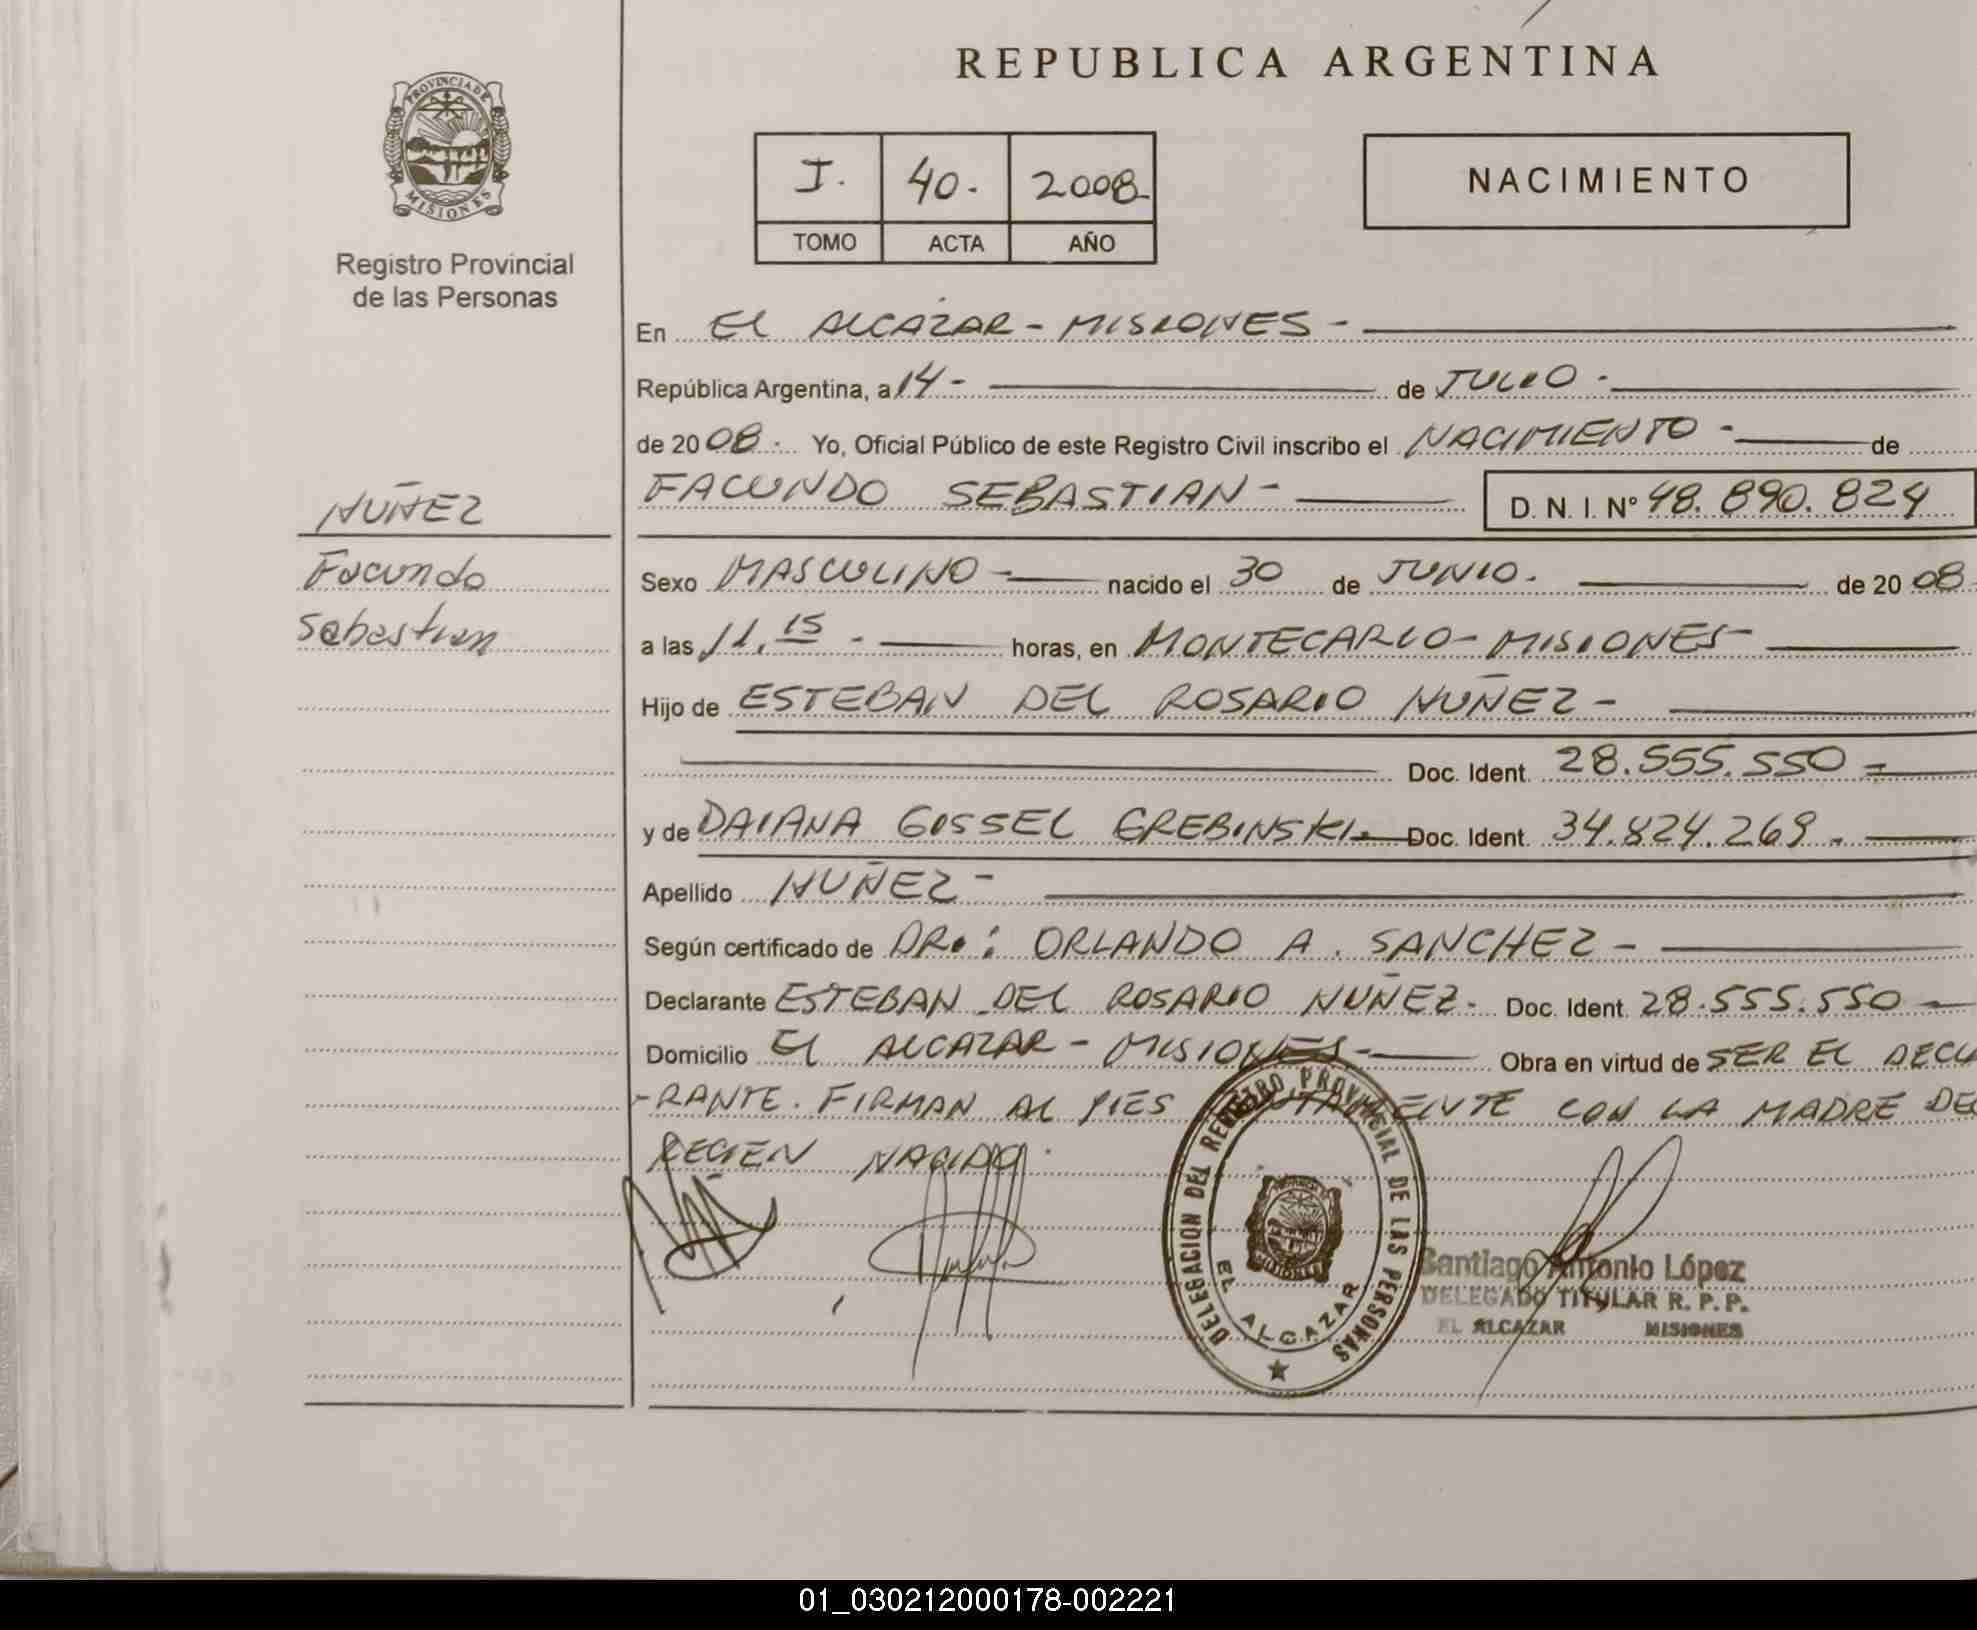 REPUBLICA ARGENTINA
PROVINCIA DE MISIONES
Registro Provincial
de las Personas
I. 40. 2008.
TOMO ACTA AÑO
NACIMIENTO
En EL ALCAZAR - MISIONES -
República Argentina, a 14 - de JULIO -
de 2008. Yo, Oficial Público de este Registro Civil inscribo el NACIMIENTO - de
FACUNDO SEBASTIAN - D. N. I. Nº 48.890.824
NUÑEZ
Facundo
Sebastian
Sexo MASCULINO - nacido el 30 de JUNIO. de 2008
a las 11.15 - horas, en MONTECARLO - MISIONES -
Hijo de ESTEBAN DEL ROSARIO NUÑEZ -
Doc. Ident. 28.555.550 -
y de DAIANA GISSEL GREBINSKI. Doc. Ident. 34.824.269. -
Apellido NUÑEZ -
Según certificado de DR.: ORLANDO A. SANCHEZ -
Declarante ESTEBAN DEL ROSARIO NUÑEZ - Doc. Ident. 28.555.550 -
Domicilio EL ALCAZAR - MISIONES - Obra en virtud de SER EL DECLA
-RANTE. FIRMAN AL PIES JUNTAMENTE CON LA MADRE DE
RECIEN NACIDO.
DELEGACION DEL REGISTRO PROVINCIAL DE LAS PERSONAS
PROVINCIA DE MISIONES
EL ALCAZAR
Santiago Antonio López
DELEGADO TITULAR R. P. P.
EL ALCAZAR MISIONES
01_030212000178-002221